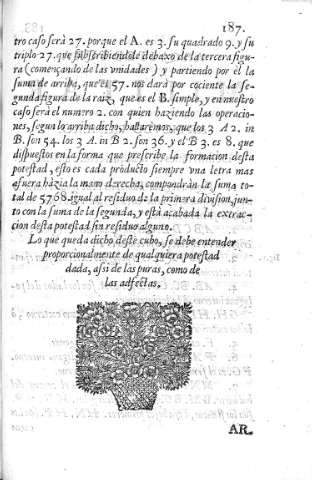 187.
tro caso serà 27. porque el A. es 3. su quadrado 9. y su
triplo 27. que subscribiendole debaxo de la tercera figu-
ra (començando de las vnidades) y partiendo por èl la
suma de arriba, que es 57. nos darà por cociente la se-
gunda figura de la raiz, que es el B. simple, y en nuestro
caso serà el numero 2. con quien haziendo las operacio-
nes, segun lo arriba dicho, hallaremos, que los 3 A 2. in
B. son 54. los 3 A. in B 2. son 36. y el B 3. es 8. que
dispuestos en la forma que prescribe la formacion desta
potestad, esto es cada producto siempre vna letra mas
afuera hàzia la mano derecha, compondràn la suma to-
tal de 5768. igual al residuo de la primera division, jun-
to con la suma de la segunda, y està acabada la extrac-
cion desta potestad sin residuo alguno.
Lo que queda dicho deste cubo, se debe entender
proporcionalmente de qualquiera potestad
dada, assi de las puras, como de
las adfectas.
AR-